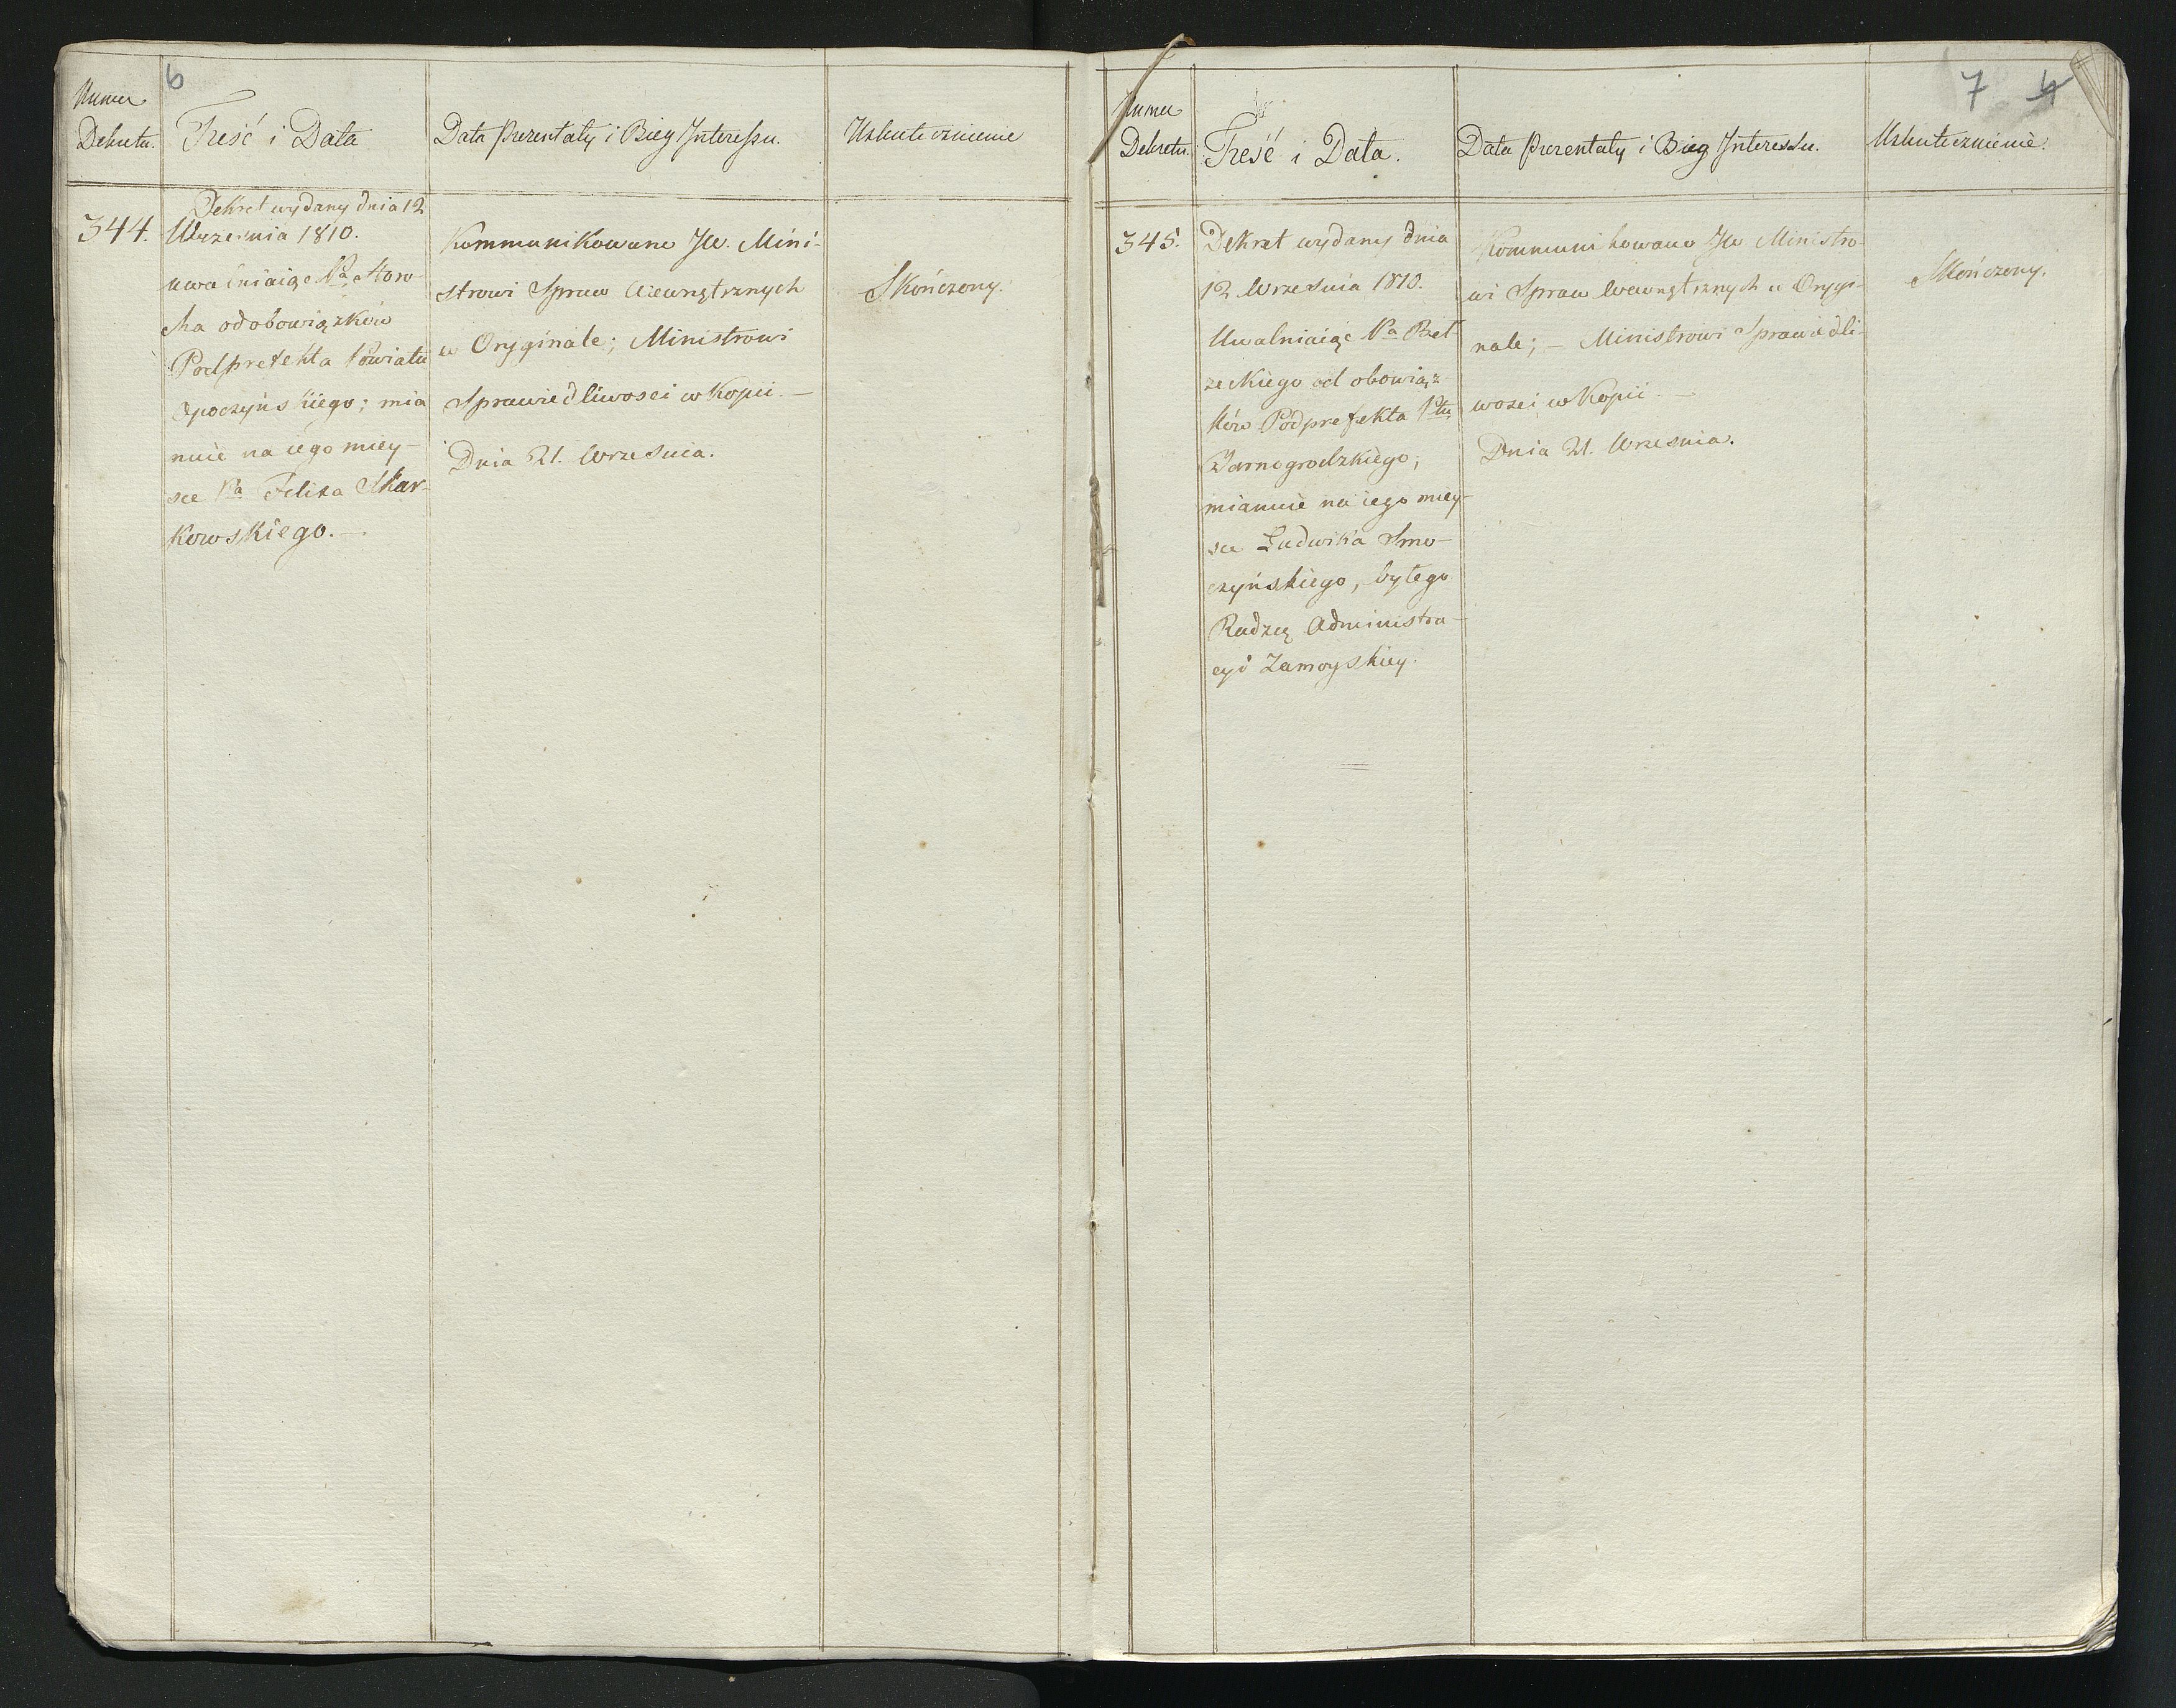 6
Numer
Dekretu.
Treść i Data
Data Prezentaty i Bieg Interessu.
Uskutecznienie
344.
Dekret wydany dnia 12
Września 1810.
uwalniaiąc Pa Horo-
cha od obowiązków
Podprefekta Powiatu
Opoczyńskiego; mia
nuie na iego miey-
sce Pa Felixa Skar-
kowskiego. —
Kommunikowane JW. Mini-
strowi Spraw Wewnętrznych
w Oryginale; Ministrowi
Sprawiedliwosci w Kopii. —
Dnia 21. Września.
Skończony.
7 4
Numer
Dekretu.
Treść i Data.
Data Prezentaty i Bieg Interessu.
Uskutecznienie.
345.
Dekret wydany dnia
12 Września 1810.
Uwalniaiąc Pa Bieł-
zeckiego od obowiąz
ków Podprefekta Ptu
Tarnogrodzkiego;
mianuie na iego miey-
sce Ludwika Smo-
czyńskiego, byłego
Radzcę Administra-
cyi Zamoyskiey.
Kommunikowano JW Ministro-
wi Spraw Wewnętrznych w Orygi-
nale; — Ministrowi Sprawiedli-
wosci w Kopii. —
Dnia 21. Wrzesnia.
Skończony.